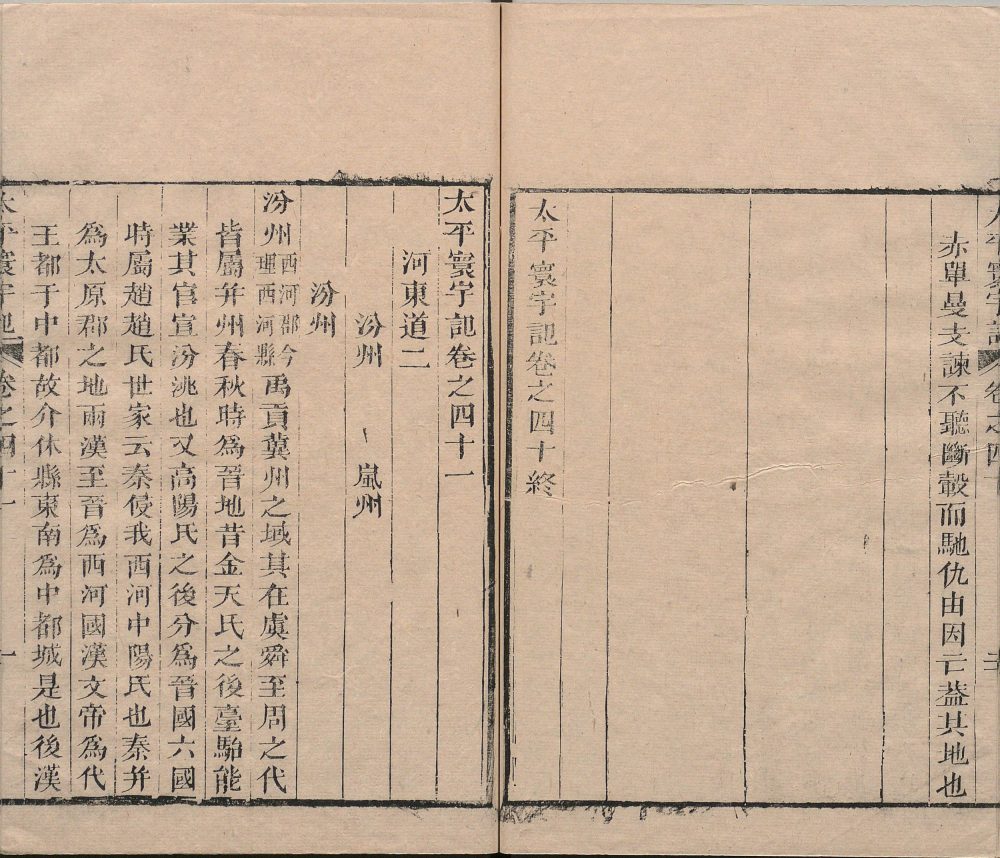 赤單曼支諫不聽斷轂而馳仇由因亡葢其地也
太平寰宇記卷之四十終
太平寰宇記卷之四十一
河東道二
汾州 嵐州
汾州
汾州西河郡今理西河縣禹貢冀州之域其在虞舜至周之代
皆屬并州春秋時爲晉地昔金天氏之後臺駘能
業其官宣汾洮也又高陽氏之後分爲晉國六國
時屬趙趙氏世家云秦侵我西河中陽氏也秦并
爲太原郡之地兩漢至晉爲西河國漢文帝爲代
王都于中都故介休縣東南爲中都城是也後漢
太平寰宇記 卷之四十一 一